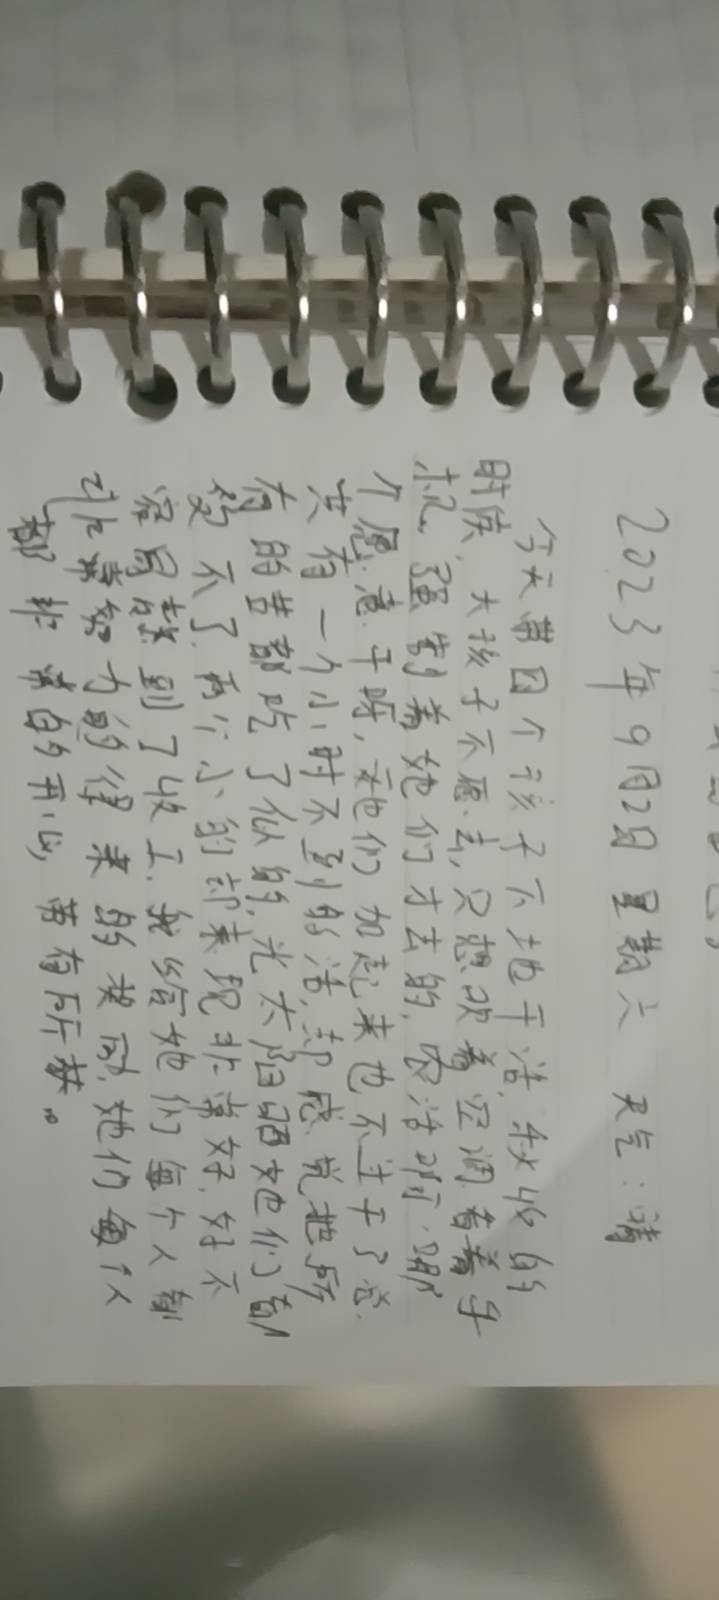 2023年9月2日 星期六 天气:晴
今天带四个孩子下地干活,秋收的
时候,大孩子不愿去,只想吹着空调看着手
机,强制着她们才去的,农活啊,哪
个愿意干呀,她们加起来也不过干了总
共有一个小时不到的活,却感觉把所
有的苦都吃了似的,光太阳晒她们都
受不了,两个小的却表现非常好,好不
容易熬到了收工,我给她们每个人都
非常努力的得来的奖励,她们每个人
都非常的开心,劳有所获。